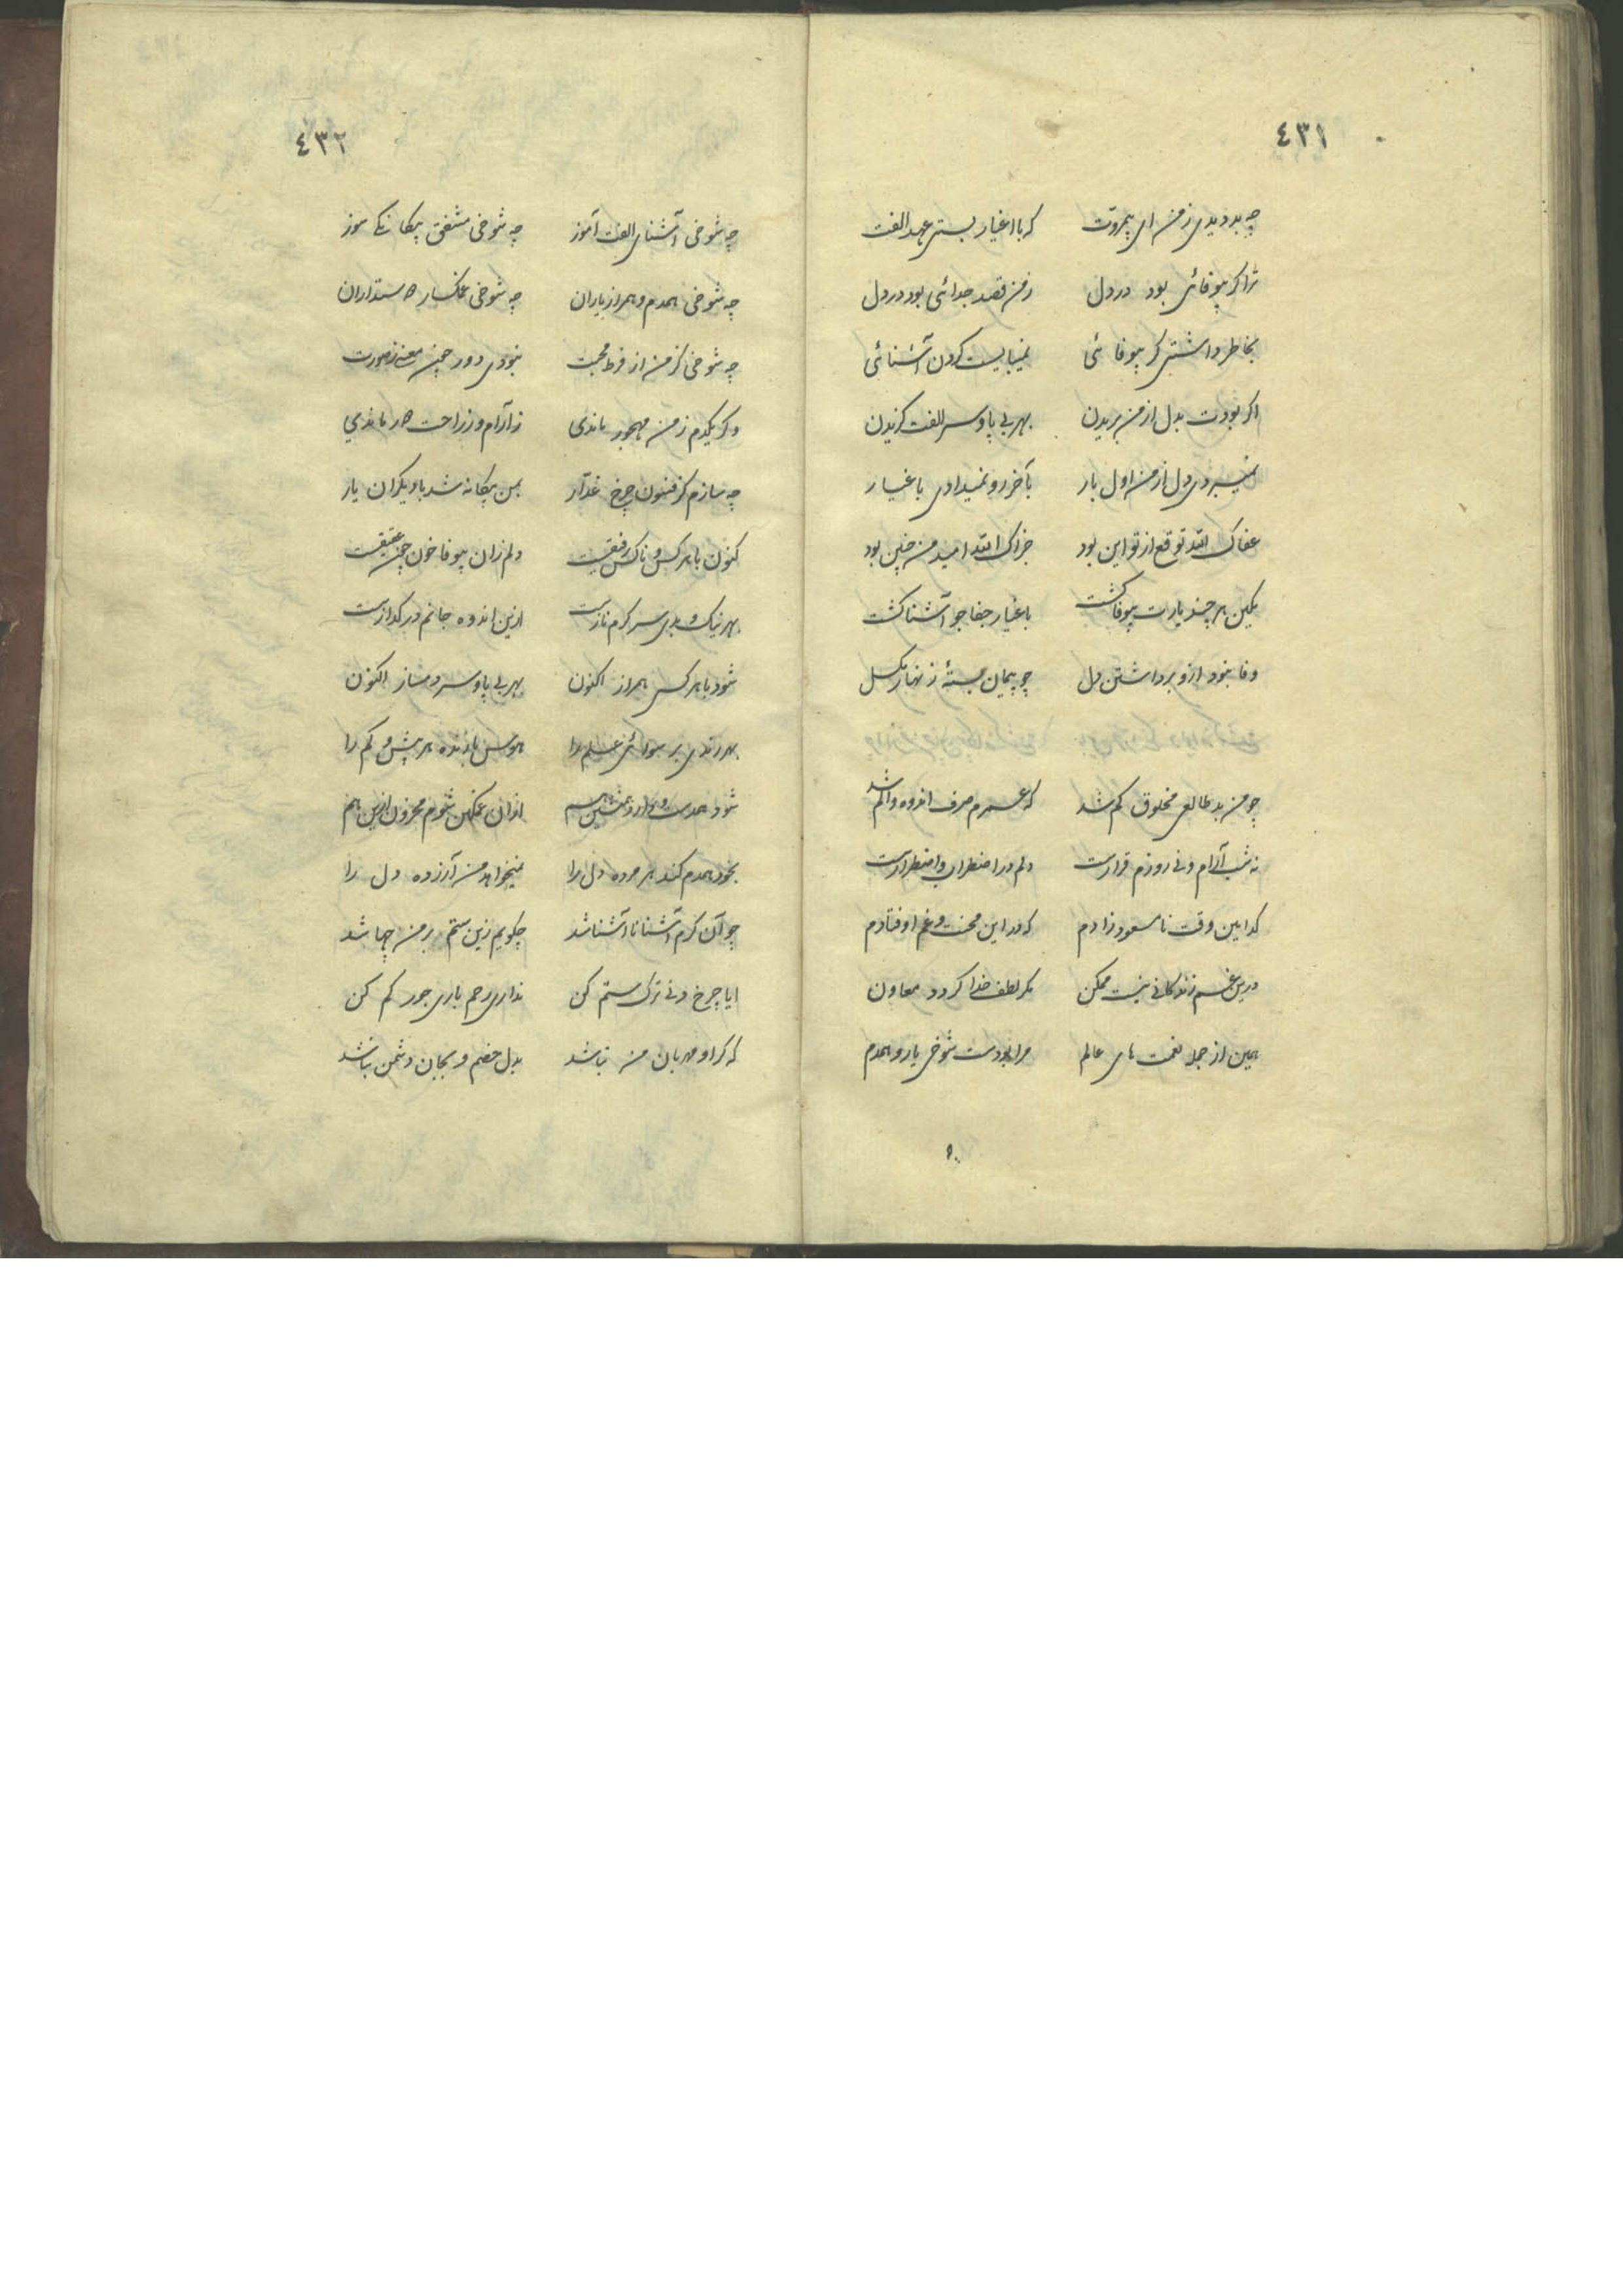 ٤٣١
چه بد دیدی ز من ای بیمروت که با اغیار بستی عهد الفت
ترا گر بیوفائی بود در دل ز من قصد جدائی بود در دل
بخاطر داشتی گر بیوفائی نمیبایست کردن آشنائی
اگر بودت بدل از من بریدن بهر بی پا و سر الفت گزیدن
نمیبردی دل از من اول بار بآخر رو نمیدادی باغیار
عفاک الله توقع از تو این بود جزاک الله امید من چنین بود
بکین هر چند یارت بیوفا گشت باغیار جفاجو آشنا گشت
وفا نبود ازو برداشتن دل چو پیمان بستهٔ زنهار مگسل
چو من بد طالعی مخلوق کم شد که عمرم صرف اندوه و الم شد
نه شب آرام و نی روزم قرارست دلم در اضطراب و اضطرارست
کدامین وقت نامسعود زادم که در این محنت و غم اوفتادم
درین غم زندگانی نیست ممکن مگر لطف خدا گردد معاون
همین از جمله نعمت های عالم مرا بودست شوخی یار و همدم
٤٣٢
چه شوخی آشنای الفت آموز چه شوخی مشفق بیگانگی سوز
چه شوخی همدم و همراز یاران چه شوخی غمگسار دوستداران
چه شوخی کز من از فرط محبت نبودی دور چون معنی ز صورت
وگر یکدم ز من مهجور ماندی ز آرام و ز راحت دور ماندی
چه سازم کز فنون چرخ غدار بمن بیگانه شد با دیگران یار
کنون با هر کس و ناکس رفیقست دلم زان بیوفا خون چون عقیقست
بهر نیک و بدی سرگرم نازست ازین اندوه جانم در گدازست
شود با هر کس همراز اکنون بهر بی پا و سر دمساز اکنون
بهر رندی بر سوائی علم را هوس بازنده هر بیش و کم را
شود همدست و همراز و همنشین هم ازان غمگین شوم محزون ازین هم
بخود همدم کند هر مرده دل را نمیخواهد من آزرده دل را
چو آن گرم آشنا ناآشنا شد چگویم زین ستم بر من چها شد
ایا چرخ دنی ترک ستم کن نداری رحم باری جور کم کن
که گر او مهربان من نباشد بدل خصم و بجان دشمن نباشد